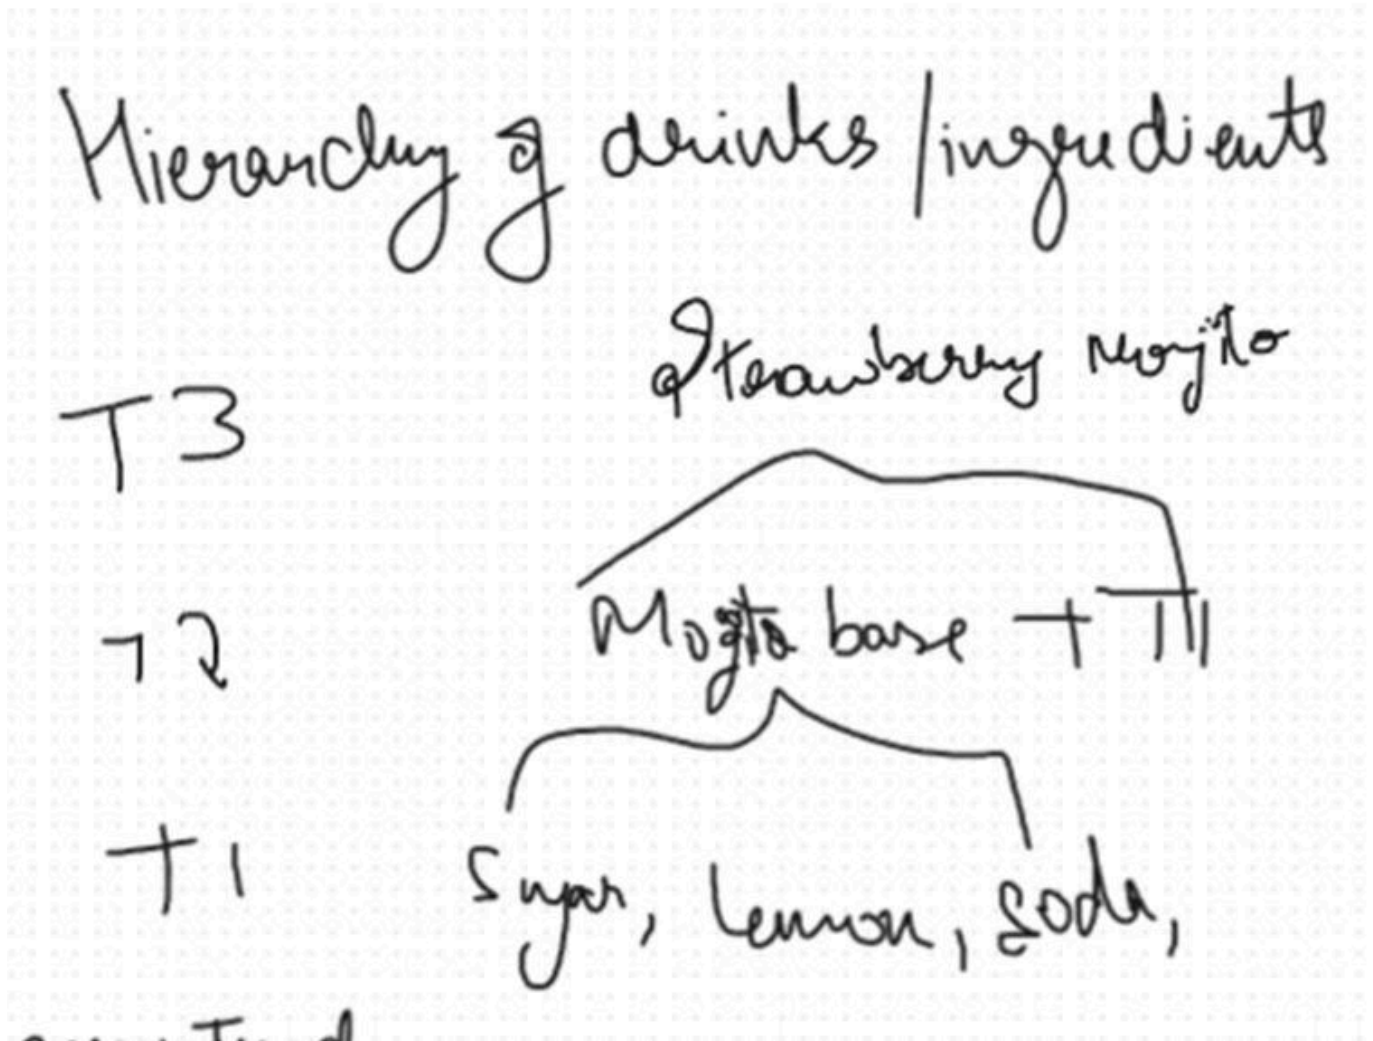 Hierarchy of drinks / ingredients
Strawberry Mojito
T3
T2 Mojito base + T1
T1 Sugar, Lemon, soda,